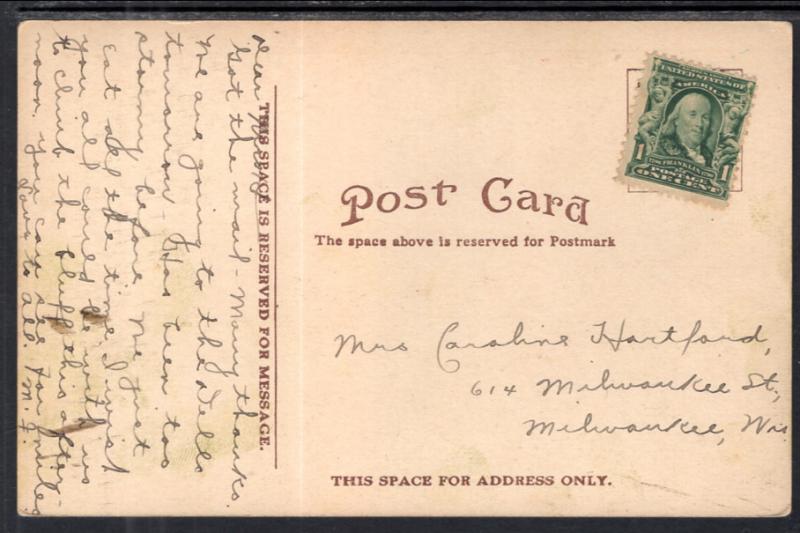 Dear
Got the mail - Many thanks.
We are going to the Dells
tomorrow - Has been too
stormy before. We just
eat all the time. I wish
you all could be with us
to climb the bluff this after-
noon. You can see for miles
Love to all. M. F.
THIS SPACE IS RESERVED FOR MESSAGE.
UNITED STATES OF
AMERICA
FRANKLIN
1 1
POSTAGE
ONE CENT
Post Card
The space above is reserved for Postmark
Mrs Caroline Hartford,
614 Milwaukee St.,
Milwaukee, Wis
THIS SPACE FOR ADDRESS ONLY.